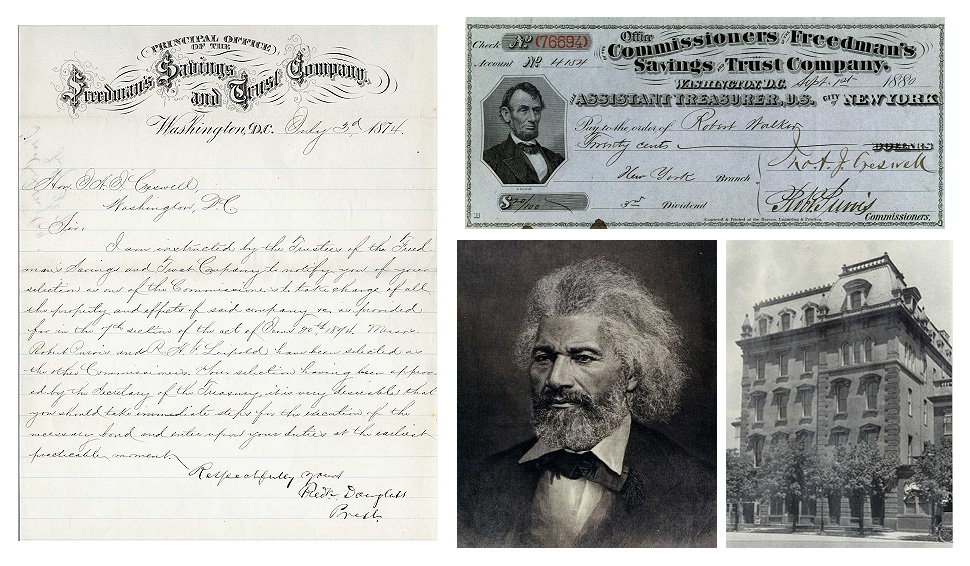 PRINCIPAL OFFICE
OF THE
Freedman's Savings
and Trust Company,
Washington, D.C. July 3d 1874.
Hon. J. A. J. Creswell,
Washington, D.C.
Sir,
I am instructed by the Trustees of the Freed
man's Savings and Trust Company to notify you of your
selection as one of the Commissioners to take charge of all
the property and effects of said company as provided
for in the 7th section of the act of June 20th 1874. Messrs.
Robert Purvis and R. H. T. Leipold have been selected as
the other Commissioners. Your selection having been approv
ed by the Secretary of the Treasury, it is very desirable that
you should take immediate steps for the execution of the
necessary bond and enter upon your duties at the earliest
practicable moment.
Respectfully yours
Fredk Douglass
Prest.
Check No (76694) Office
Commissioners of the Freedman's
Account No 4154 Savings and Trust Company.
WASHINGTON, D.C. Sept. 1st 1880
ASSISTANT TREASURER, U.S. CITY OF NEW YORK
Pay to the order of Robert Walker
Twenty cents DOLLARS
Jno. A. J. Creswell
New York Branch
Robt Purvis
$20/100 3rd Dividend Commissioners.
Engraved & Printed at the Bureau, Engraving & Printing.